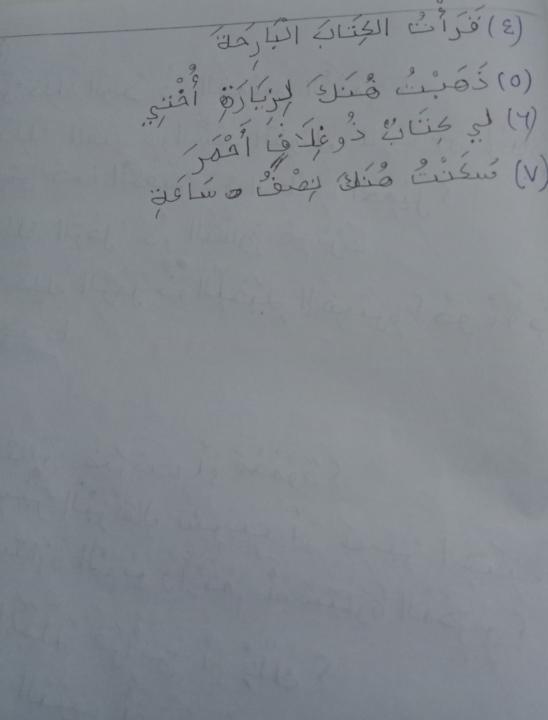 (٤) قَرَأْتُ الكِتَابَ الْبَارِحَةَ
(٥) ذَهَبْتُ هُنَكَ لِزِيَارَةِ أُخْتِي
(٦) لي كِتَابٌ ذُو غِلَافٍ أَحْمَرَ
(٧) سَكَنْتُ هُنَكَ نِصْفُ سَاعَةٍ